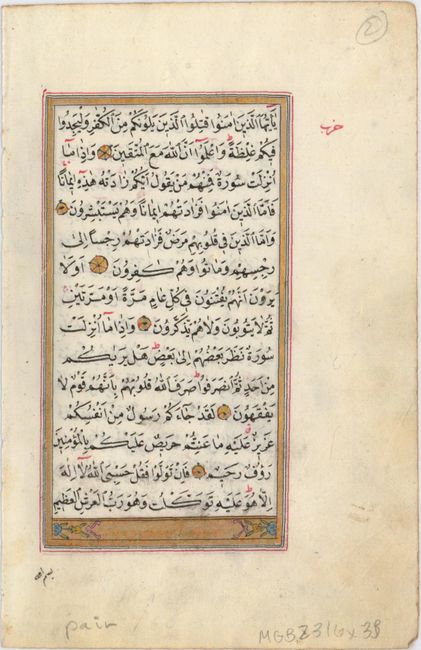 2
يَا أَيُّهَا الَّذِينَ آمَنُوا قَاتِلُوا الَّذِينَ يَلُونَكُمْ مِنَ الْكُفَّارِ وَلْيَجِدُوا
حزب
فِيكُمْ غِلْظَةً وَاعْلَمُوا أَنَّ اللَّهَ مَعَ الْمُتَّقِينَ وَإِذَا مَا
أُنْزِلَتْ سُورَةٌ فَمِنْهُمْ مَنْ يَقُولُ أَيُّكُمْ زَادَتْهُ هَذِهِ إِيمَانًا
فَأَمَّا الَّذِينَ آمَنُوا فَزَادَتْهُمْ إِيمَانًا وَهُمْ يَسْتَبْشِرُونَ
وَأَمَّا الَّذِينَ فِي قُلُوبِهِمْ مَرَضٌ فَزَادَتْهُمْ رِجْسًا إِلَى
رِجْسِهِمْ وَمَاتُوا وَهُمْ كَافِرُونَ أَوَلَا
يَرَوْنَ أَنَّهُمْ يُفْتَنُونَ فِي كُلِّ عَامٍ مَرَّةً أَوْ مَرَّتَيْنِ
ثُمَّ لَا يَتُوبُونَ وَلَا هُمْ يَذَّكَّرُونَ وَإِذَا مَا أُنْزِلَتْ
سُورَةٌ نَظَرَ بَعْضُهُمْ إِلَى بَعْضٍ هَلْ يَرَيكُمْ
مِنْ أَحَدٍ ثُمَّ انْصَرَفُوا صَرَفَ اللَّهُ قُلُوبَهُمْ بِأَنَّهُمْ قَوْمٌ لَا
يَفْقَهُونَ لَقَدْ جَاءَكُمْ رَسُولٌ مِنْ أَنْفُسِكُمْ
عَزِيزٌ عَلَيْهِ مَا عَنِتُّمْ حَرِيصٌ عَلَيْكُمْ بِالْمُؤْمِنِينَ
رَؤُفٌ رَحِيمٌ فَإِنْ تَوَلَّوْا فَقُلْ حَسْبِيَ اللَّهُ لَا إِلَهَ
إِلَّا هُوَ عَلَيْهِ تَوَكَّلْتُ وَهُوَ رَبُّ الْعَرْشِ الْعَظِيمِ
بسم الله
pair